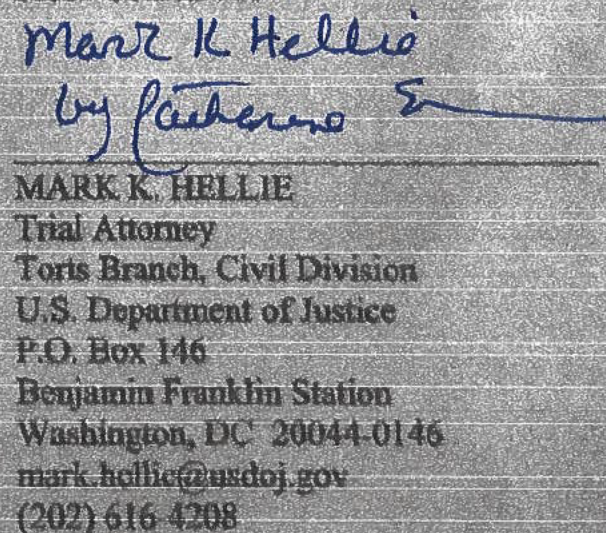 Mark K Hellie
by Catharine
MARK K. HELLIE
Trial Attorney
Torts Branch, Civil Division
U.S. Department of Justice
P.O. Box 146
Benjamin Franklin Station
Washington, DC 20044-0146
mark.hellie@usdoj.gov
(202) 616-4208